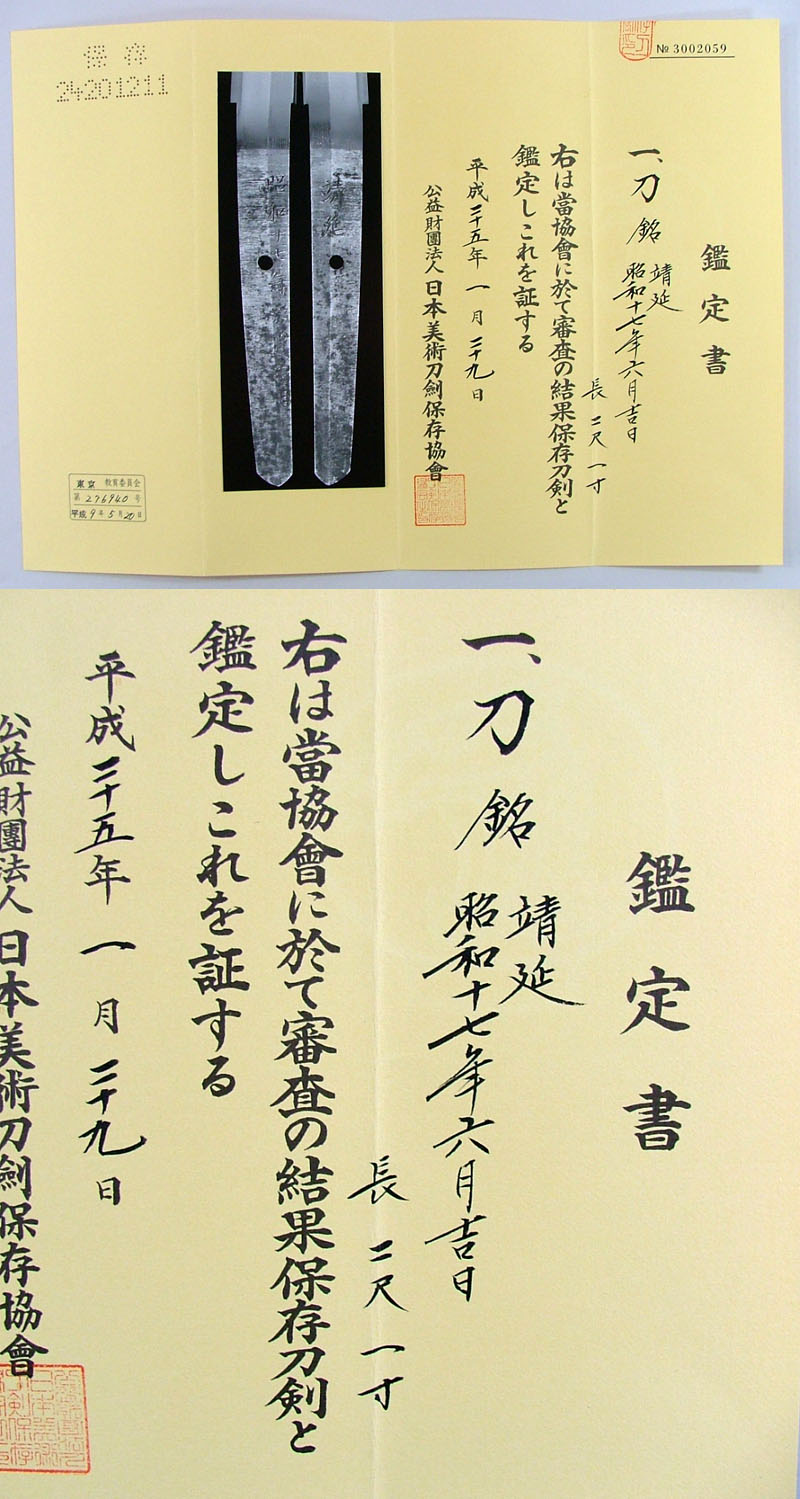 № 3002059
鑑定書
一、刀 銘 靖延
昭和十七年六月吉日
長 二尺一寸
右は當協會に於て審査の結果保存刀剣と
鑑定しこれを証する
平成二十五年一月二十九日
公益財團法人日本美術刀劍保存協會
保存
24201211
靖延
昭和十七年
東京 教育委員会
第 276940 号
平成 9年 5月 20日
鑑定書
一、刀 銘 靖延
昭和十七年六月吉日
長 二尺一寸
右は當協會に於て審査の結果保存刀剣と
鑑定しこれを証する
平成二十五年一月二十九日
公益財團法人日本美術刀劍保存協會